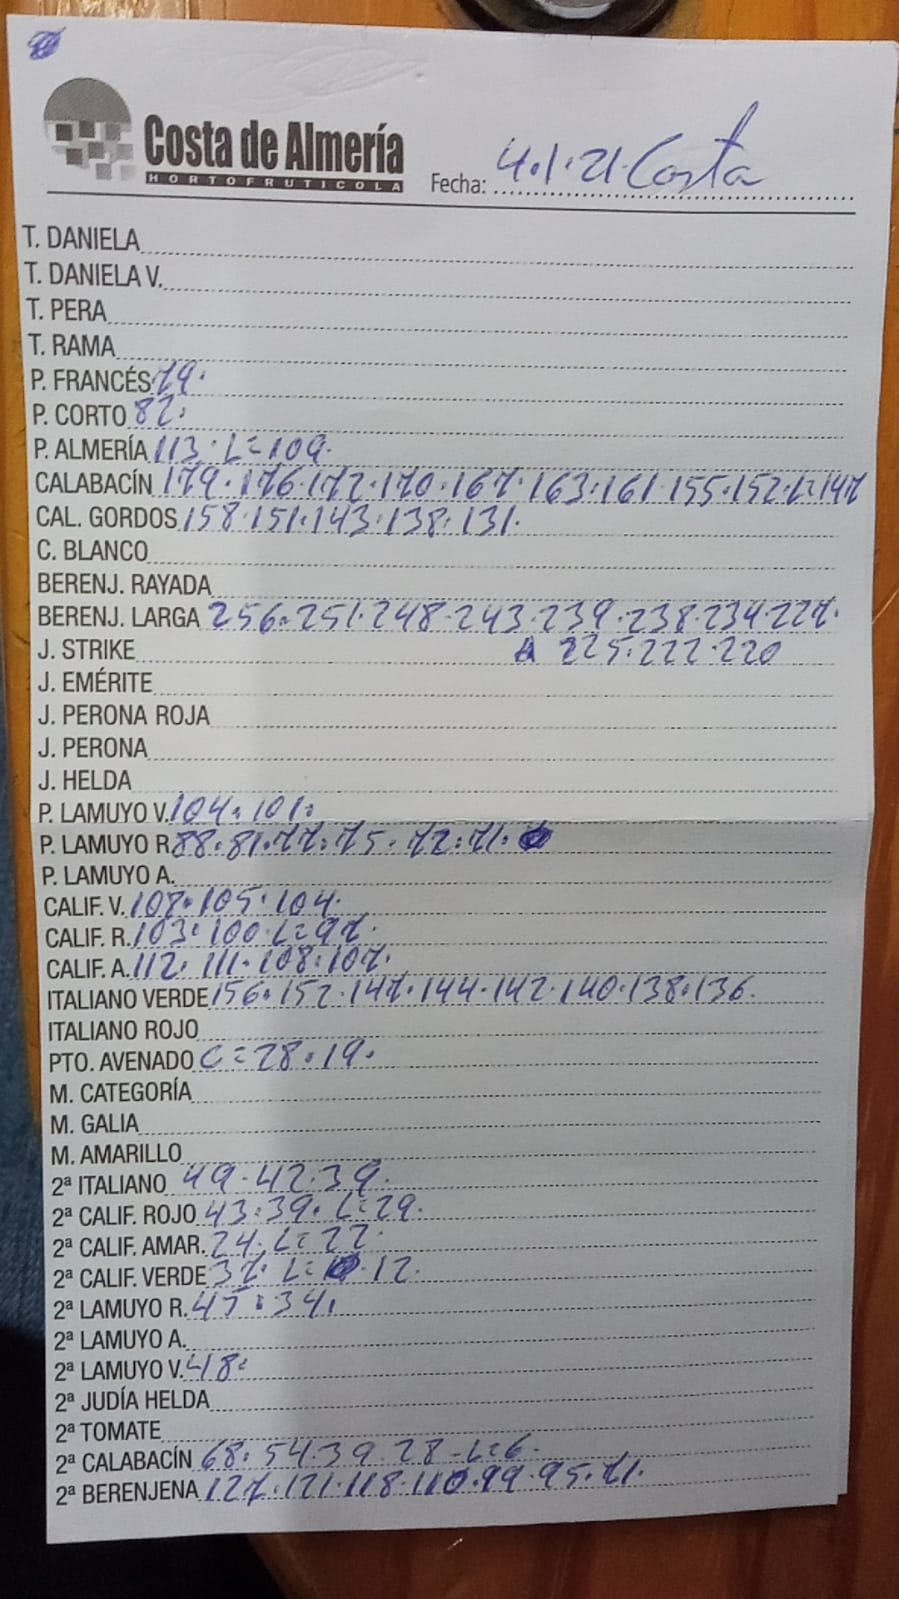 Costa de Almería
HORTOFRUTICOLA
Fecha: 4.1.21. Costa
T. DANIELA
T. DANIELA V.
T. PERA
T. RAMA
P. FRANCÉS 79.
P. CORTO 82.
P. ALMERÍA 113. L=109.
CALABACÍN 179.176.172.170.167.163.161.155.152.L=147
CAL. GORDOS 158.151.143.138.131.
C. BLANCO
BERENJ. RAYADA
BERENJ. LARGA 256.251.248.243.239.238.234.227.
J. STRIKE 225.222.220
J. EMÉRITE
J. PERONA ROJA
J. PERONA
J. HELDA
P. LAMUYO V. 104.101.
P. LAMUYO R. 88.81.77.75.72.71.
P. LAMUYO A.
CALIF. V. 107.105.104.
CALIF. R. 103.100.L=97.
CALIF. A. 112.111.108.107.
ITALIANO VERDE 156.152.147.144.142.140.138.136.
ITALIANO ROJO
PTO. AVENADO C=28.19.
M. CATEGORÍA
M. GALIA
M. AMARILLO
2ª ITALIANO 49.42.39.
2ª CALIF. ROJO 43.39.L=29.
2ª CALIF. AMAR. 24.L=22.
2ª CALIF. VERDE 37. L= 12.
2ª LAMUYO R. 34.
2ª LAMUYO A.
2ª LAMUYO V. 48.
2ª JUDÍA HELDA
2ª TOMATE
2ª CALABACÍN 68.54.39.28-L=6.
2ª BERENJENA 127.121.118.110.99.95.71.